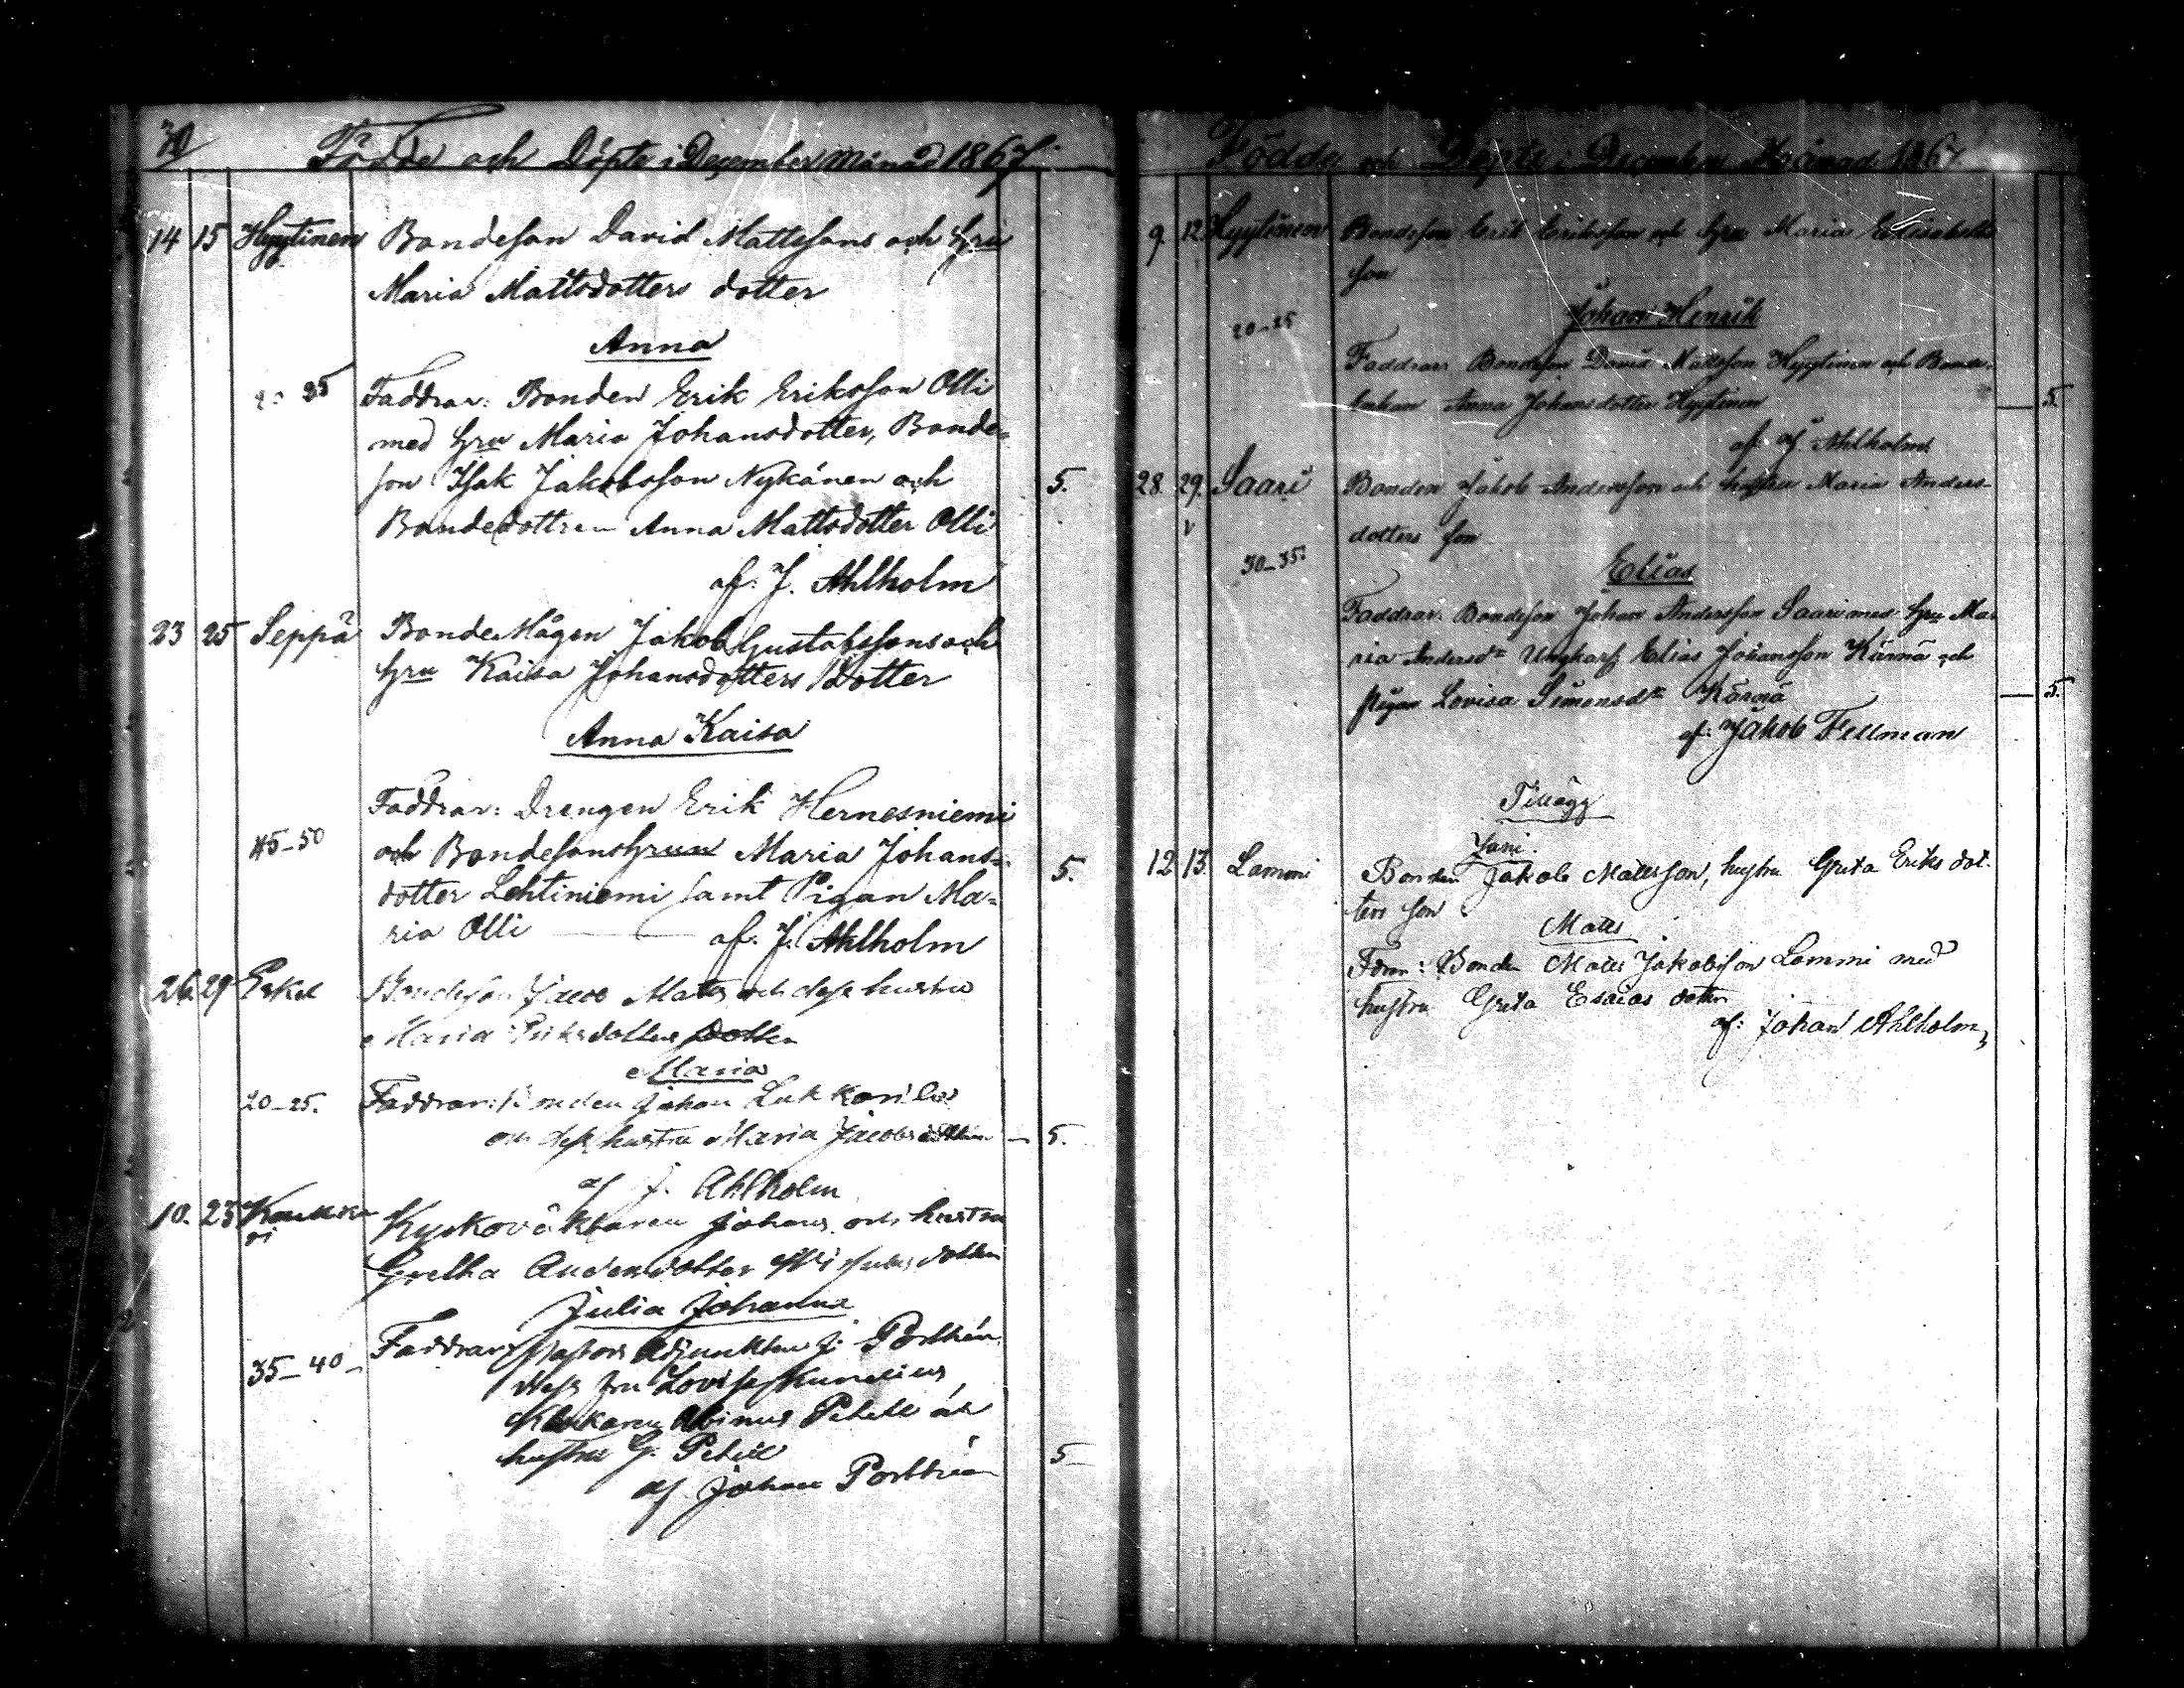 30
Födde och Döpte i December Månad 1867
14 15 Hyytinen Bondeson David Mattssons och Hru
Maria Mattsdotters dotter
Anna
25 Faddrar: Bonden Erik Eriksson Olli
med Hru Maria Johansdotter, Bonde=
son Isak Jakobsson Nykänen och 5.
Bondedottren Anna Mattsdotter Olli
af: J. Ahlholm
23 25 Seppä BondeMågen Jakob Gustafssons och
Hru Kaisa Johansdotters Dotter
Anna Kaisa
Faddrar: Drengen Erik Hernesniemi
45-50 och Bondesonshrun Maria Johans=
dotter Lehtiniemi samt Pigan Ma= 5.
ria Olli af: J. Ahlholm
26. 29 Eskel Bondeson Jacob Mats och dess hustru
Maria Eriksdotters Dotter
Maria
20-25. Faddrar: Bonden Johan Lukkarila
och dess hustru Maria Jacobsdotter - 5.
af J. Ahlholm
10. 25
Kyrkoväktaren Johans och hustru
Gretha Andersdotter dotter
Julia Johanna
35-40- Faddrar: Pastors Adjunkten J. Porthén
dess fru Lovisa
Klokaren Petell
hustru G. Petell 5-
af Johan Porthén
Födde och Döpte i December Månad 1867.
9. 12. Hyytinen Bondeson Erik Eriksson och Hru Maria Elisabeths
son
Johan Henrik
20-25
Faddrar: Bondeson David Mattsson Hyytinen och Bonde-
Anna Johansdotter Hyytinen - 5.
af: J. Ahlholm.
28. 29. Saari Bonden Jakob Andersson och hustru Maria Anders-
v dotters son
30-35. Elias
Faddrar: Bondeson Johan Andersson Saari med Hru Ma-
ria Andersdr Ungkarl Elias Johansson Kärnä och
pigan Lovisa Simonsdr Kärnä - 5.
af: Jakob Fellman
Tillägg
Juni.
12 13. Lammi Bonden Jakob Matsson, hustru Greta Eriks dot-
ters son
Mats
Fddr: Bonden Mats Jakobsson Lammi med
hustru Greta Esaias dotter
af: Johan Ahlholm,